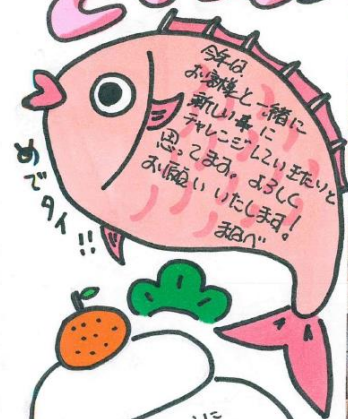 今年は
お客様と一緒に
新しい事に
チャレンジしていきたいと
思ってます。よろしく
お願いいたします!
まなべ
めでタイ!!
に